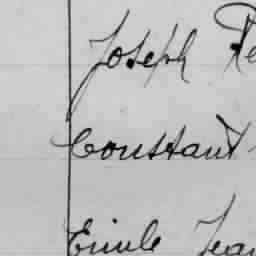 Joseph
Constant
Emile Jean